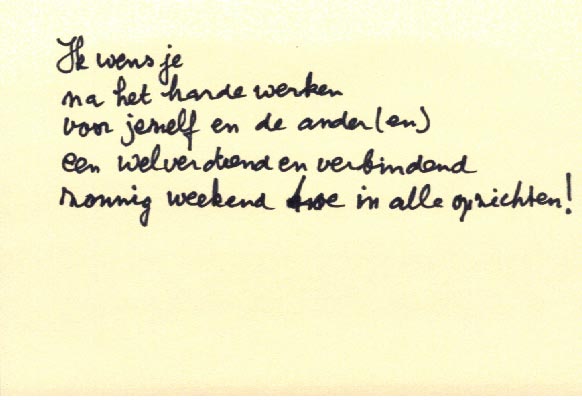 Ik wens je
na het harde werken
voor jezelf en de ander(en)
een welverdiend en verbindend
zonnig weekend in alle opzichten!